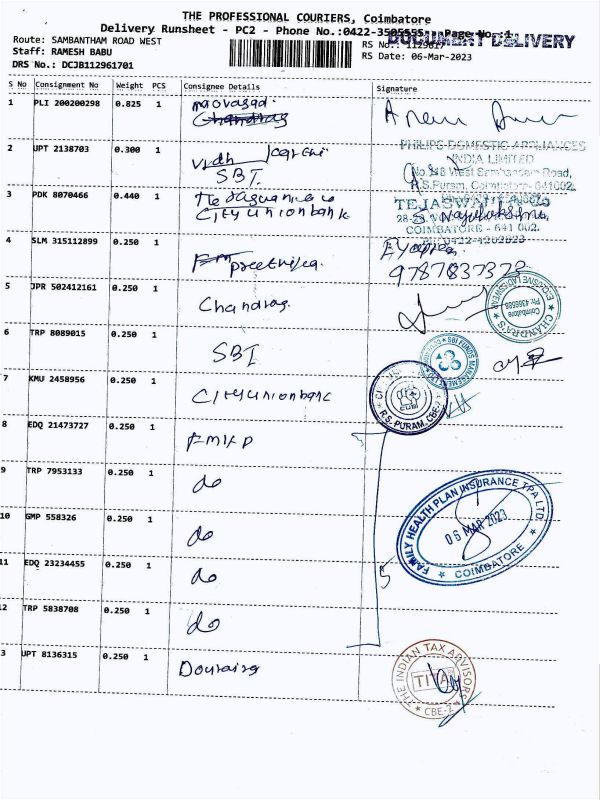 THE PROFESSIONAL COURIERS, Coimbatore
Delivery Runsheet - PC2 - Phone No.:0422-3505555 Page No.:1
DOCUMENT DELIVERY
Route: SAMBANTHAM ROAD WEST
RS No.: 1129617
Staff: RAMESH BABU
RS Date: 06-Mar-2023
DRS No.: DCJB112961701
S No Consignment No Weight PCS Consignee Details Signature
1 PLI 200200298 0.825 1
Chandras
2 UPT 2138703 0.300 1
SBI
PHILIPS DOMESTIC APPLIANCES
INDIA LIMITED
R.S.Puram, Coimbatore - 641002.
3 PDK 8070466 0.440 1
City union bank
COIMBATORE - 641 002.
4 SLM 315112899 0.250 1
9787837373
5 JPR 502412161 0.250 1 Chandras.
CHANDRA'S
Coimbatore
6 TRP 8089015 0.250 1 SBI
SBI FUNDS MANAGEMENT
7 KMU 2458956 0.250 1 City union bank
R.S. PURAM, CBE-2
8 EDQ 21473727 0.250 1
9 TRP 7953133 0.250 1 do
FAMILY HEALTH PLAN INSURANCE TPA LTD
06 MAR 2023
COIMBATORE
10 GMP 558326 0.250 1 do
11 EDQ 23234455 0.250 1 do
5
12 TRP 5838708 0.250 1 do
3 UPT 8136315 0.250 1
THE INDIAN TAX ADVISORS
TITA
CBE-2